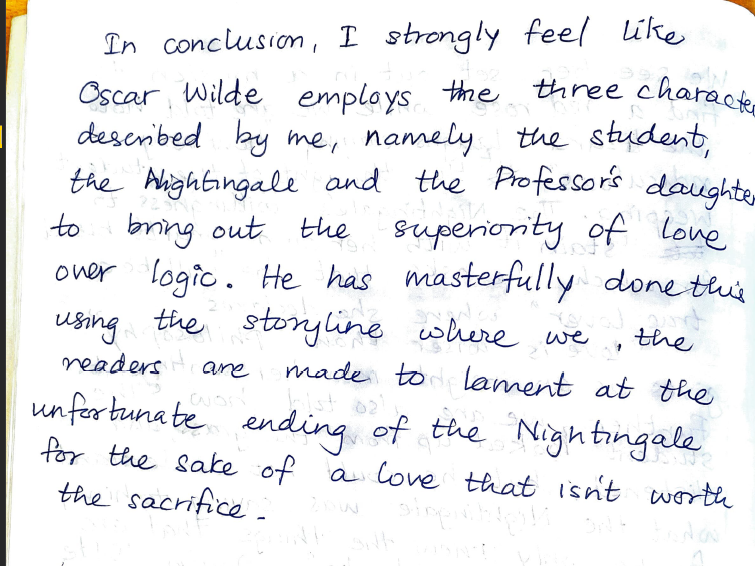 In conclusion, I strongly feel like
Oscar Wilde employs the three characte
described by me, namely the student,
the Nightingale and the Professor's daughter
to bring out the superiority of love
over logic. He has masterfully done this
using the storyline where we, the
readers are made to lament at the
unfortunate ending of the Nightingale
for the sake of a love that isn't worth
the sacrifice.